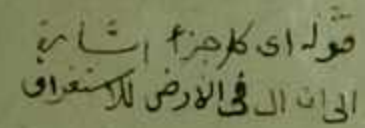 قوله اى كل جزء اشارة
الى ان ال فى الارض للاستغراق